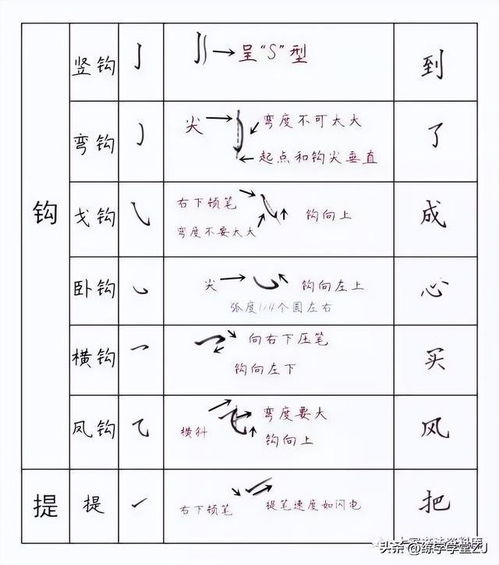 钩
竖钩
亅
呈“S”型
到
弯钩
尖
弯度不可太大
起点和钩尖垂直
了
戈钩
右下顿笔
弯度不要太大
钩向上
成
卧钩
尖
钩向左上
弧度1/4个圆左右
心
横钩
向右下压笔
钩向左下
买
凤钩
横斜
弯度要大
钩向上
风
提
提
右下顿笔
提笔速度如闪电
把
头条@练字学堂ZJ